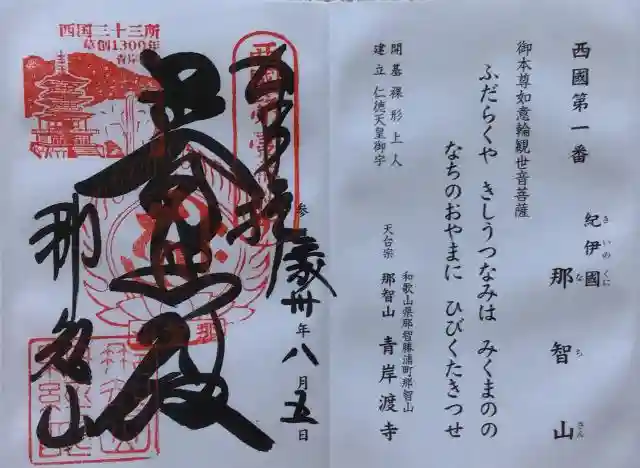 西國第一番
紀伊國
きいのくに
那智山
なちさん
御本尊如意輪観世音菩薩
ふだらくや きしうつなみは みくまのの
なちのおやまに ひびくたきつせ
開基 裸形上人
建立 仁徳天皇御宇
天台宗
和歌山県那智勝浦町那智山
那智山 青岸渡寺
奉拝
参
年八月五日
普照殿
那智山
西国三十三所
草創1300年
青岸